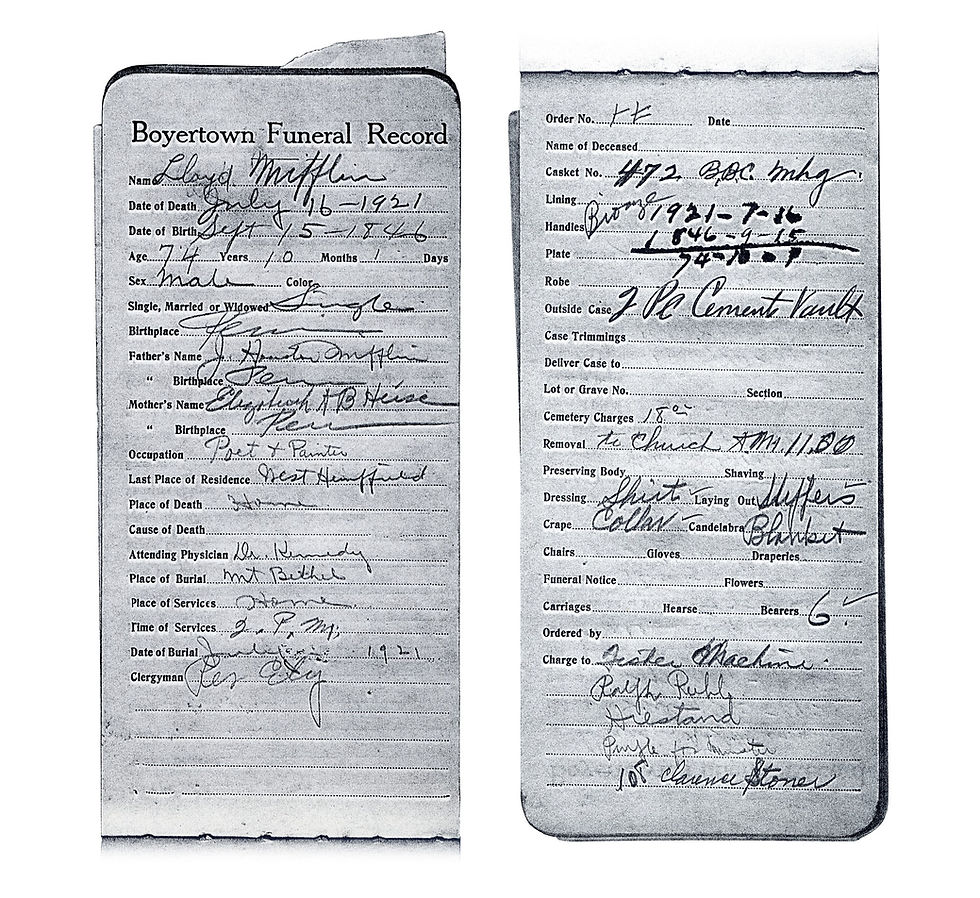 Boyertown Funeral Record
Name Lloyd Mifflin
Date of Death July 16-1921
Date of Birth Sept 15-1846
Age 74 Years 10 Months 1 Days
Sex Male Color
Single, Married or Widowed Single
Birthplace Penn
Father's Name J. Houston Mifflin
" Birthplace Penn
Mother's Name Elizabeth A B Heise
" Birthplace Penn
Occupation Poet & Painter
Last Place of Residence West Hempfield
Place of Death Home
Cause of Death
Attending Physician Dr. Kennedy
Place of Burial Mt Bethel
Place of Services Home
Time of Services 2. P. M.
Date of Burial July 1921
Clergyman Rev Ely
Order No. Date
Name of Deceased
Casket No. 472 B.B.C. Mhg
Lining
Handles Bronze 1921-7-16
1846-9-15
Plate 74-10-1
Robe
Outside Case 2 Pc Cement Vault
Case Trimmings
Deliver Case to
Lot or Grave No. Section
Cemetery Charges 18
Removal to Church A.M. 11.30
Preserving Body Shaving
Dressing Shirt Laying Out Slippers
Crape Collar Candelabra Blanket
Chairs Gloves Draperies
Funeral Notice Flowers
Carriages Hearse Bearers 6
Ordered by
Charge to Machine
Ralph Ruhl
Hiestand
Purple for Minister
Clarence Stoner